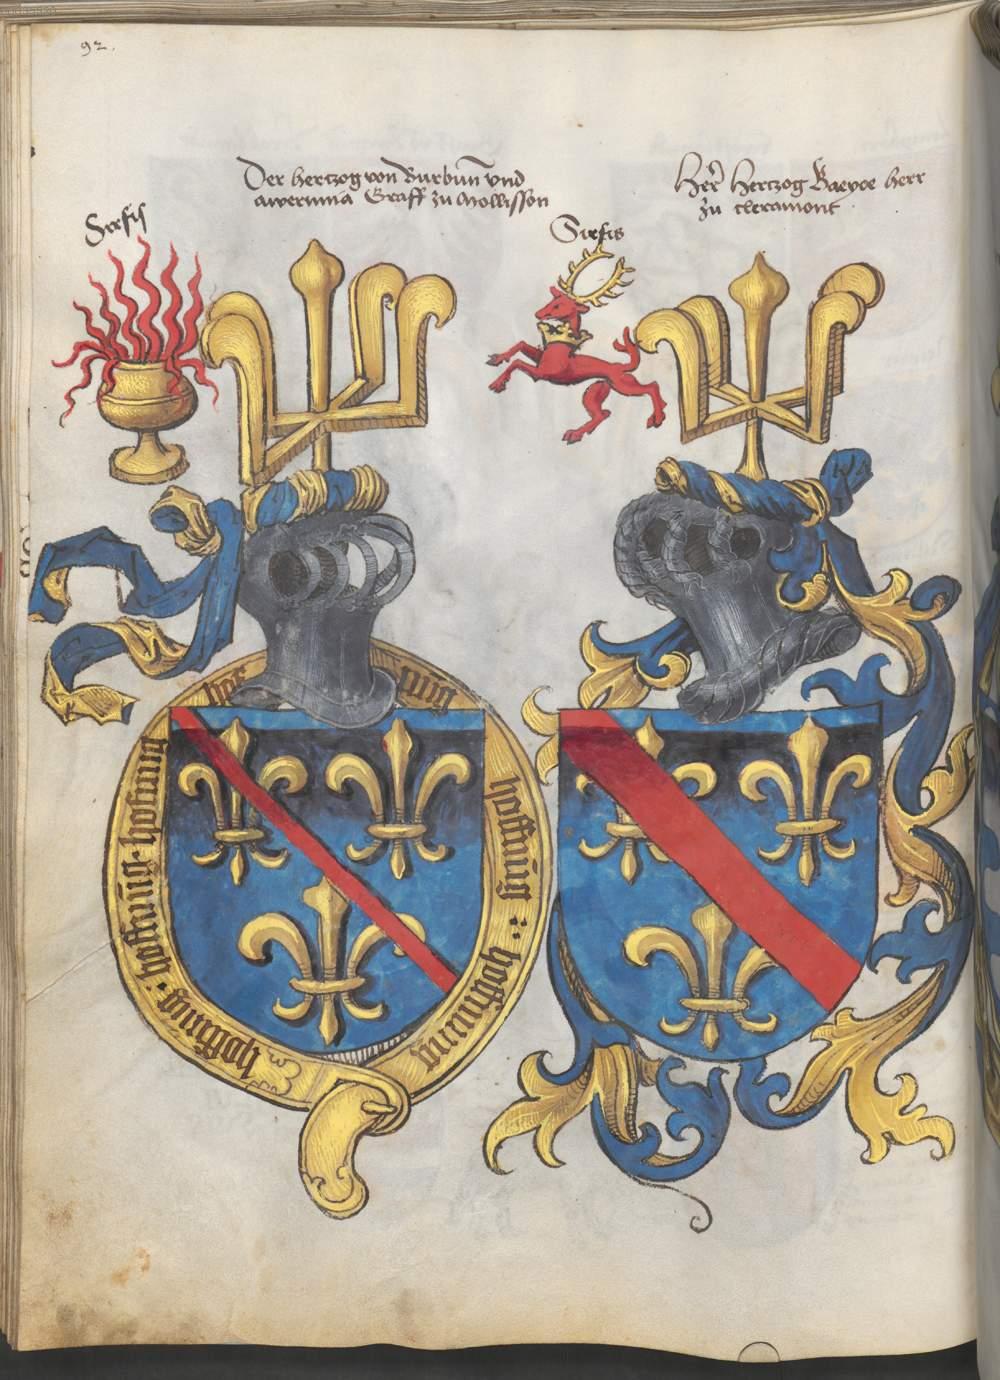 92.
Der hertzog von Burbun̄ vnd
awerinnia Graff zu Mollisson
Her Hertzog Baeyoe herr
zu cleramont
Sirfis
Sirfis
hof
nung
hofnung
hoffnung
hoffnung
hoffnung
hoffnung